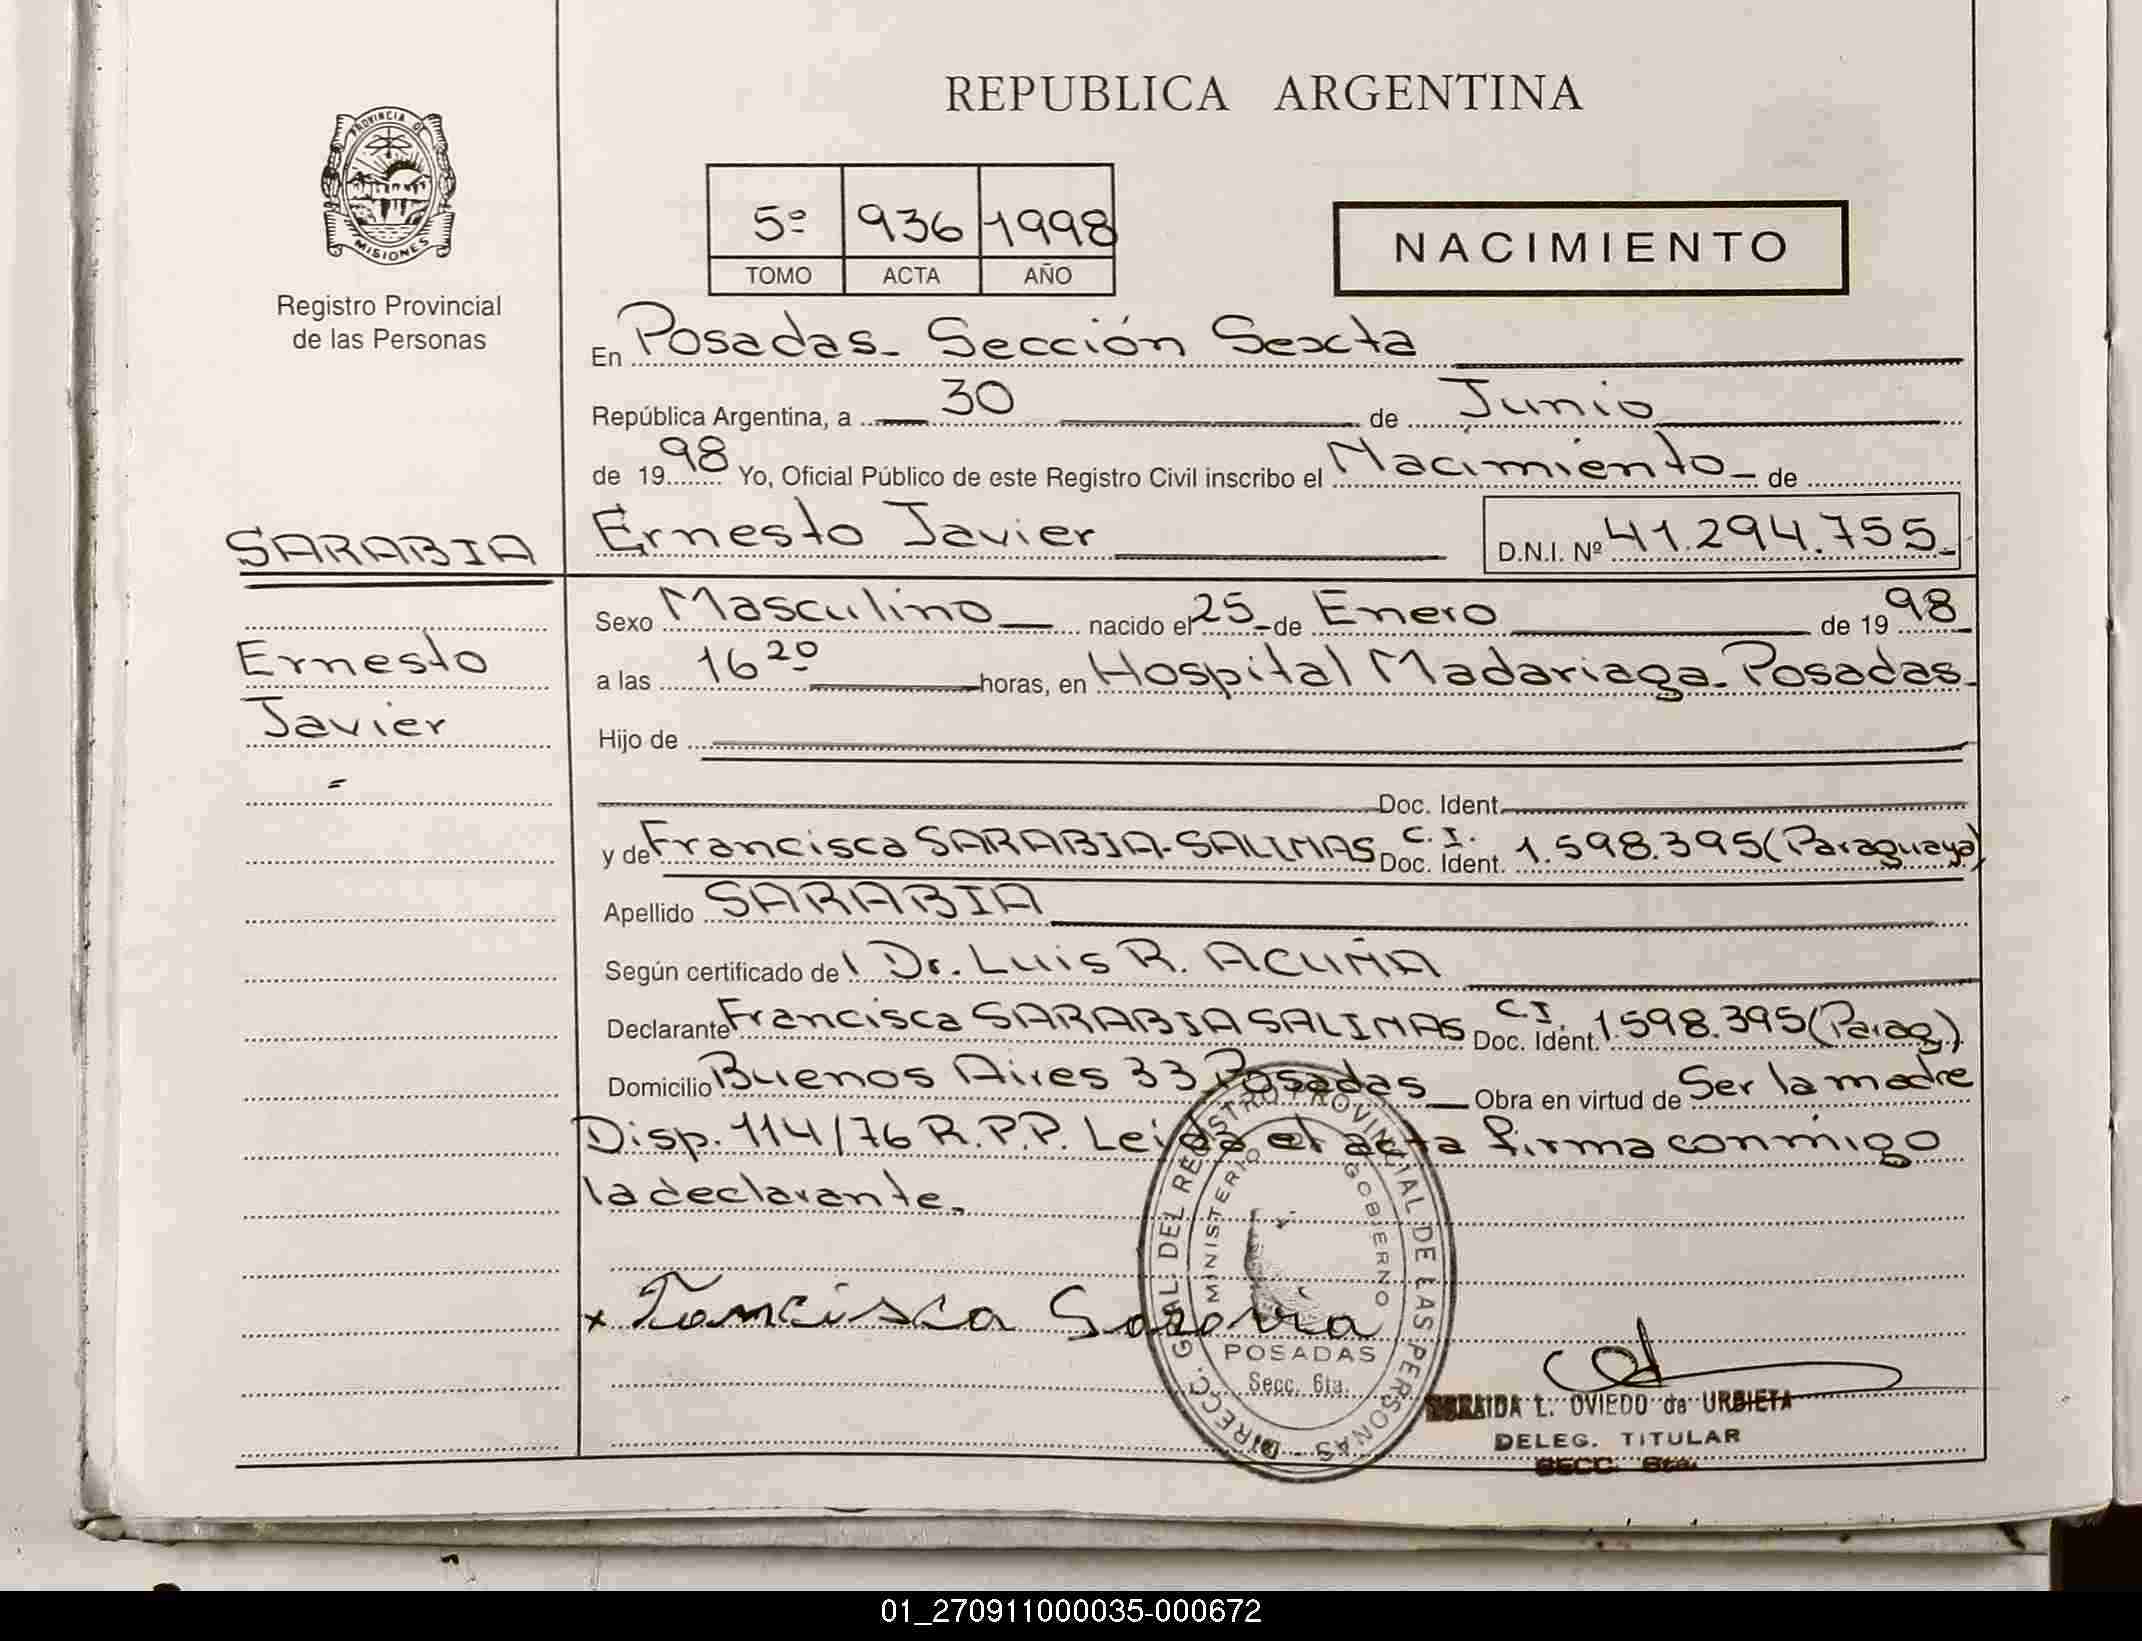 REPUBLICA ARGENTINA
PROVINCIA DE
MISIONES
Registro Provincial
de las Personas
5º 936 1998
TOMO ACTA AÑO
NACIMIENTO
En Posadas - Sección Sexta
República Argentina, a 30 de Junio
de 1998 Yo, Oficial Público de este Registro Civil inscribo el Nacimiento - de
SARABIA
Ernesto Javier D.N.I. Nº 41.294.755-
Ernesto
Javier
Sexo Masculino nacido el 25 - de Enero de 1998
a las 16 20 horas, en Hospital Madariaga - Posadas -
Hijo de
Doc. Ident.
y de Francisca SARABIA - SALINAS C.I. Doc. Ident. 1.598.395 (Paraguaya)
Apellido SARABIA
Según certificado de Dr. Luis R. ACUÑA
Declarante Francisca SARABIA SALINAS C.I. Doc. Ident. 1.598.395 (Parag.)
Domicilio Buenos Aires 33 Posadas Obra en virtud de Ser la madre
Disp. 114/76 R.P.P. Leida el acta firma conmigo
la declarante.
x Francisca Saravia
DIRECC. GRAL. DEL REGISTRO PROVINCIAL DE LAS PERSONAS
MINISTERIO GOBIERNO
POSADAS
Secc. 6ta.
L. OVIEDO de URBIETA
DELEG. TITULAR
SECC. 6ta.
01_270911000035-000672